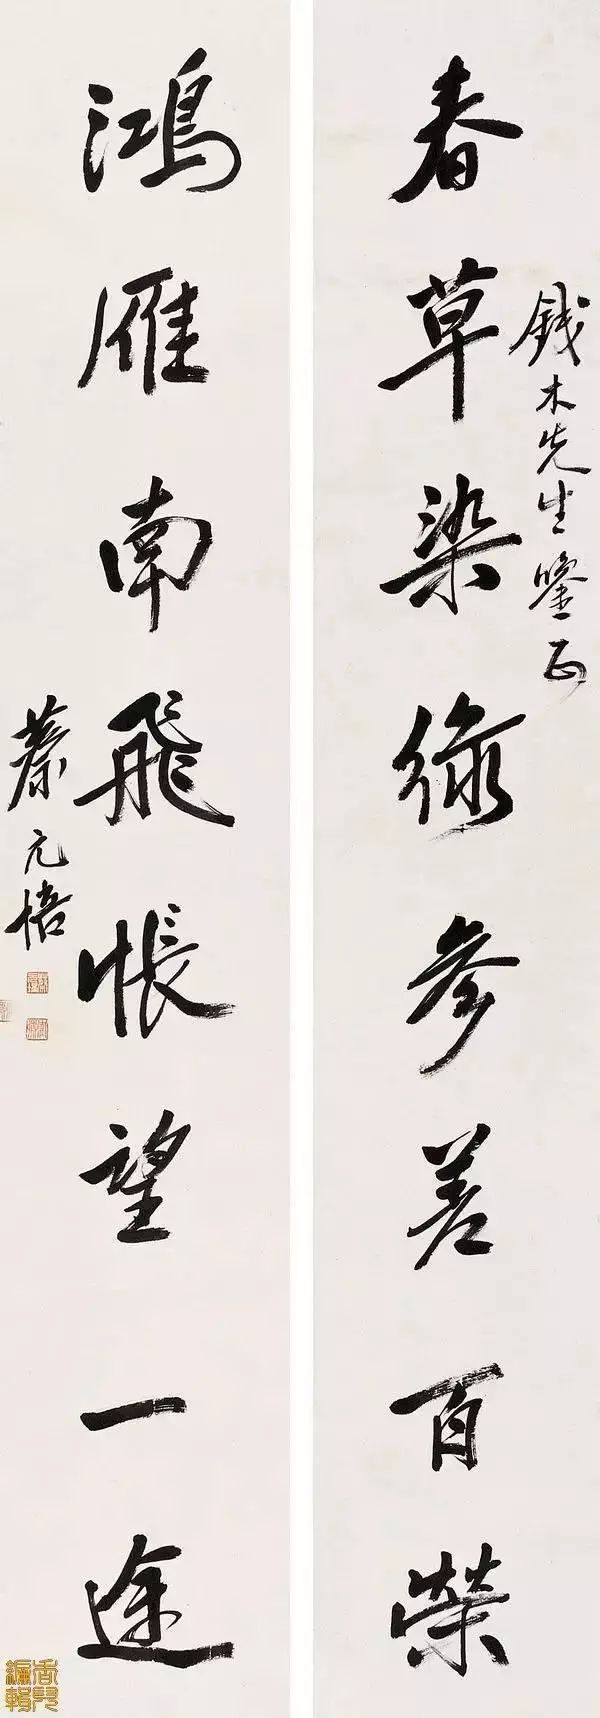 春草染綠參差百榮
錢木先生鑒正
鴻雁南飛悵望一途
蔡元培